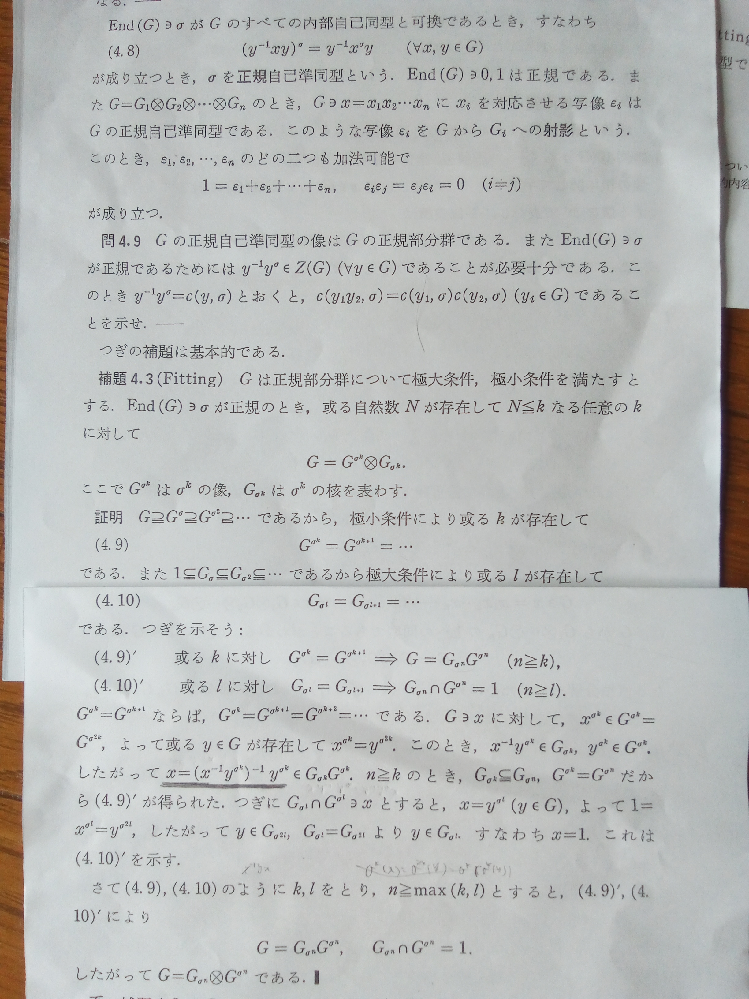 End(G)∋σ が G のすべての内部自己同型と可換であるとき，すなわち
(4.8) (y⁻¹xy)^σ = y⁻¹x^σy (∀x, y∈G)
が成り立つとき，σ を正規自己準同型という．End(G)∋0, 1 は正規である．ま
た G=G₁⊗G₂⊗⋯⊗Gₙ のとき，G∋x=x₁x₂⋯xₙ に xᵢ を対応させる写像 εᵢ は
G の正規自己準同型である．このような写像 εᵢ を G から Gᵢ への射影という．
このとき，ε₁, ε₂, ⋯, εₙ のどの二つも加法可能で
1 = ε₁+ε₂+⋯+εₙ, εᵢεⱼ = εⱼεᵢ = 0 (i≠j)
が成り立つ．
問4.9 G の正規自己準同型の像は G の正規部分群である．また End(G)∋σ
が正規であるためには y⁻¹y^σ∈Z(G) (∀y∈G) であることが必要十分である．こ
のとき y⁻¹y^σ=c(y, σ) とおくと，c(y₁y₂, σ)=c(y₁, σ)c(y₂, σ) (yᵢ∈G) であるこ
とを示せ．——
つぎの補題は基本的である．
補題4.3(Fitting) G は正規部分群について極大条件，極小条件を満たすと
する．End(G)∋σ が正規のとき，或る自然数 N が存在して N≦k なる任意の k
に対して
G = G^{σ^k}⊗G_{σ^k}.
ここで G^{σ^k} は σ^k の像，G_{σ^k} は σ^k の核を表わす．
証明 G⊇G^σ⊇G^{σ^2}⊇⋯ であるから，極小条件により或る k が存在して
(4.9) G^{σ^k} = G^{σ^{k+1}} = ⋯
である．また 1⊆G_σ⊆G_{σ^2}⊆⋯ であるから極大条件により或る l が存在して
(4.10) G_{σ^l} = G_{σ^{l+1}} = ⋯
である．つぎを示そう：
(4.9)′ 或る k に対し G^{σ^k} = G^{σ^{k+1}} ⟹ G = G_{σ^n}G^{σ^n} (n≧k),
(4.10)′ 或る l に対し G_{σ^l} = G_{σ^{l+1}} ⟹ G_{σ^n}∩G^{σ^n} = 1 (n≧l).
G^{σ^k}=G^{σ^{k+1}} ならば，G^{σ^k}=G^{σ^{k+1}}=G^{σ^{k+2}}=⋯ である．G∋x に対して，x^{σ^k}∈G^{σ^k}=
G^{σ^{2k}}，よって或る y∈G が存在して x^{σ^k}=y^{σ^{2k}}．このとき，x⁻¹y^{σ^k}∈G_{σ^k}, y^{σ^k}∈G^{σ^k}.
したがって x=(x⁻¹y^{σ^k})⁻¹y^{σ^k}∈G_{σ^k}G^{σ^k}. n≧k のとき，G_{σ^k}⊆G_{σ^n}, G^{σ^k}=G^{σ^n} だか
ら (4.9)′ が得られた．つぎに G_{σ^l}∩G^{σ^l}∋x とすると，x=y^{σ^l} (y∈G)，よって 1=
x^{σ^l}=y^{σ^{2l}}，したがって y∈G_{σ^{2l}}, G_{σ^l}=G_{σ^{2l}} より y∈G_{σ^l}. すなわち x=1．これは
(4.10)′ を示す．
さて (4.9), (4.10) のように k, l をとり，n≧max(k, l) とすると，(4.9)′, (4.
10)′ により
G = G_{σ^n}G^{σ^n}, G_{σ^n}∩G^{σ^n} = 1.
したがって G=G_{σ^n}⊗G^{σ^n} である．∎